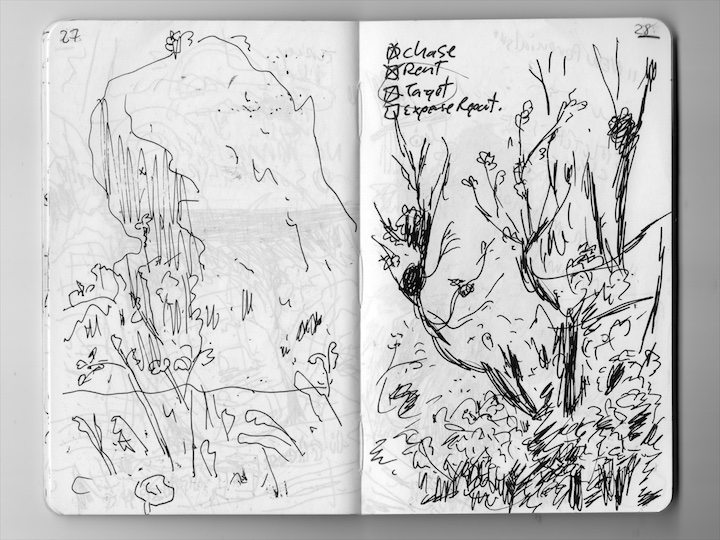 27
28
Chase
Rent
Target
Expense Report.